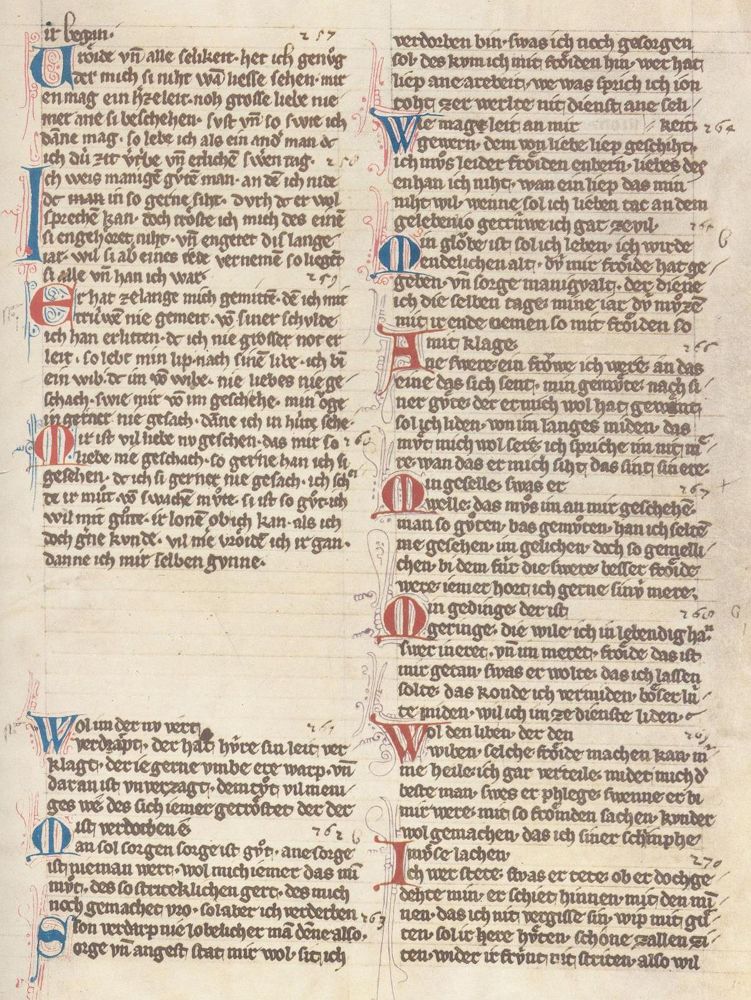 ir began· 257
Uröide vn̄ alle selikeit· het ich genůg
der mich si niht wā liesse sehen· mir
en mag ein h̄zeleit· noh grosse liebe nie
mer ane si beschehen· sust vn̄ so swie ich
dāne mag· so lebe ich als ein and̄ man dc
ich dú zit v̄tribe vn̄ erlichen swēn tag· 258
Ich weis manigē gůtē man· an dē ich nide
dc man in so gerne siht· durh dc er wol
sprechē kan· doch trőste ich mich des einē
si engehőret niht· vn̄ engeret dis lange
iar· wil si ab eines rede vernemē so liegēt
si alle vn̄ han ich war· 259
Er hat zelange mich gemitē· dē ich mit
trúwen nie gemeit· vō siner schulde
ich han erlitten· dc ich nie grosser not er
leit· so lebt min lip· nach sinē libe· ich bī
ein wib· dc im vō wibe· nie liebes nie ge
schach· swie mir vō im geschehe· min őge
in gerner nie gesach· dāne ich in húte sehe·
Mir ist vil liebe nv geschen· das mir so 260
liebe nie geschach· so gerne han ich si
gesehen· dc ich si gerner nie gesach· ich
te ir mūt· vō swachem můte· si ist so gůt· ich
wil mit gůte· ir lonē ob ich kan· als ich
doch ḡne kunde· vil mē vrőidē ich ir gan·
danne ich mir selben gunne·
Wol im der nv vert 261
verdarpt· der hat húre sin leit ver
klagt· der ie gerne vmbe ere warp· vn̄
dar an ist vnverzagt· dem tůt vil meni
ges we· des sich iemer getrőstet der der
ist verdorben e· 262 G
Man sol sorgen sorge ist gůt· ane sorge
ist nieman wert· wol mich iemer das mī
můt· des so striteklichen gert· des mich
noch gemachet vro· sol aber ich verderben
son verdarp nie lobelicher mā dēne also· 263
Sorge vn̄ angest stat mir wol· sit ich
verdorben bin· swas ich noch gesorgen
sol· des kvm ich mit frőiden hin· wer hat
liep ane arebeit· we was sprich ich ion
toht zer werlte nit dienst ane seli
Wie mag leit an mir keit· 264
gewern· dem von liebe liep geschiht·
ich můs leider frőiden enbern· liebes des
enhan ich niht· wan ein liep das min
niht wil· wenne sol ich lieben tac an dem
gelebenio getrúwe ich gar ze vil· 265
Min glőbe ist sol ich leben· ich wirde G
endelichen alt· dú mir frőide hat ge
geben· vn̄ sorge manigvalt· der diene
ich die selben tage· mine iar dú můzē
mit ir ende nemen so mit frőiden so
mit klage· 266
Ane swere ein frőwe ich were· an das
eine das sich sent· min gemůte· nach si
ner gůte· der er mich wol hat gewent·
sol ich liden· von im langes miden· das
můt mich wol sere· ich spriche im nit m̄
re· wan das er mich siht das sint sin ere·
Min geselle· swas er 267
welle· das můs im an mir geschehē·
man so gůten· bas gemůten· han ich seltē
me gesehen· im gelichen· doch so gemelli
chen· bi dem fúr die swere· besser frőide
were· iemer hort ich gerne sinú mere·
Min gedinge· der ist 268 G
geringe· die wile ich in lebendig ha͞n·
swer in eret· vn̄ im meret· frőide das ist
mir getan· swas er wolte· das ich lassen
solte· das konde ich vermiden· bőser lú
te niden· wil ich im ze dienste liden·
Wol den liben· der den 269
wiben· selche frőide machen kan· m
ne heile· ich gar verteile· midet mich d̄
beste man· swes er phlege· swenne er bi
mir were· mit so frőmden sachen· kvnder
wol gemachen· das ich siner schimphe
můse lachen· 270
Ich wer stete· swas er tete· ob er doch ge
dehte min· er schiet hinnen· mit den mī
nen· das ich nit vergisse sin· wip mit gů
ten· sol ir here hůten· schőne zallen zi
ten· wider ir frúnt nit striten· also wil